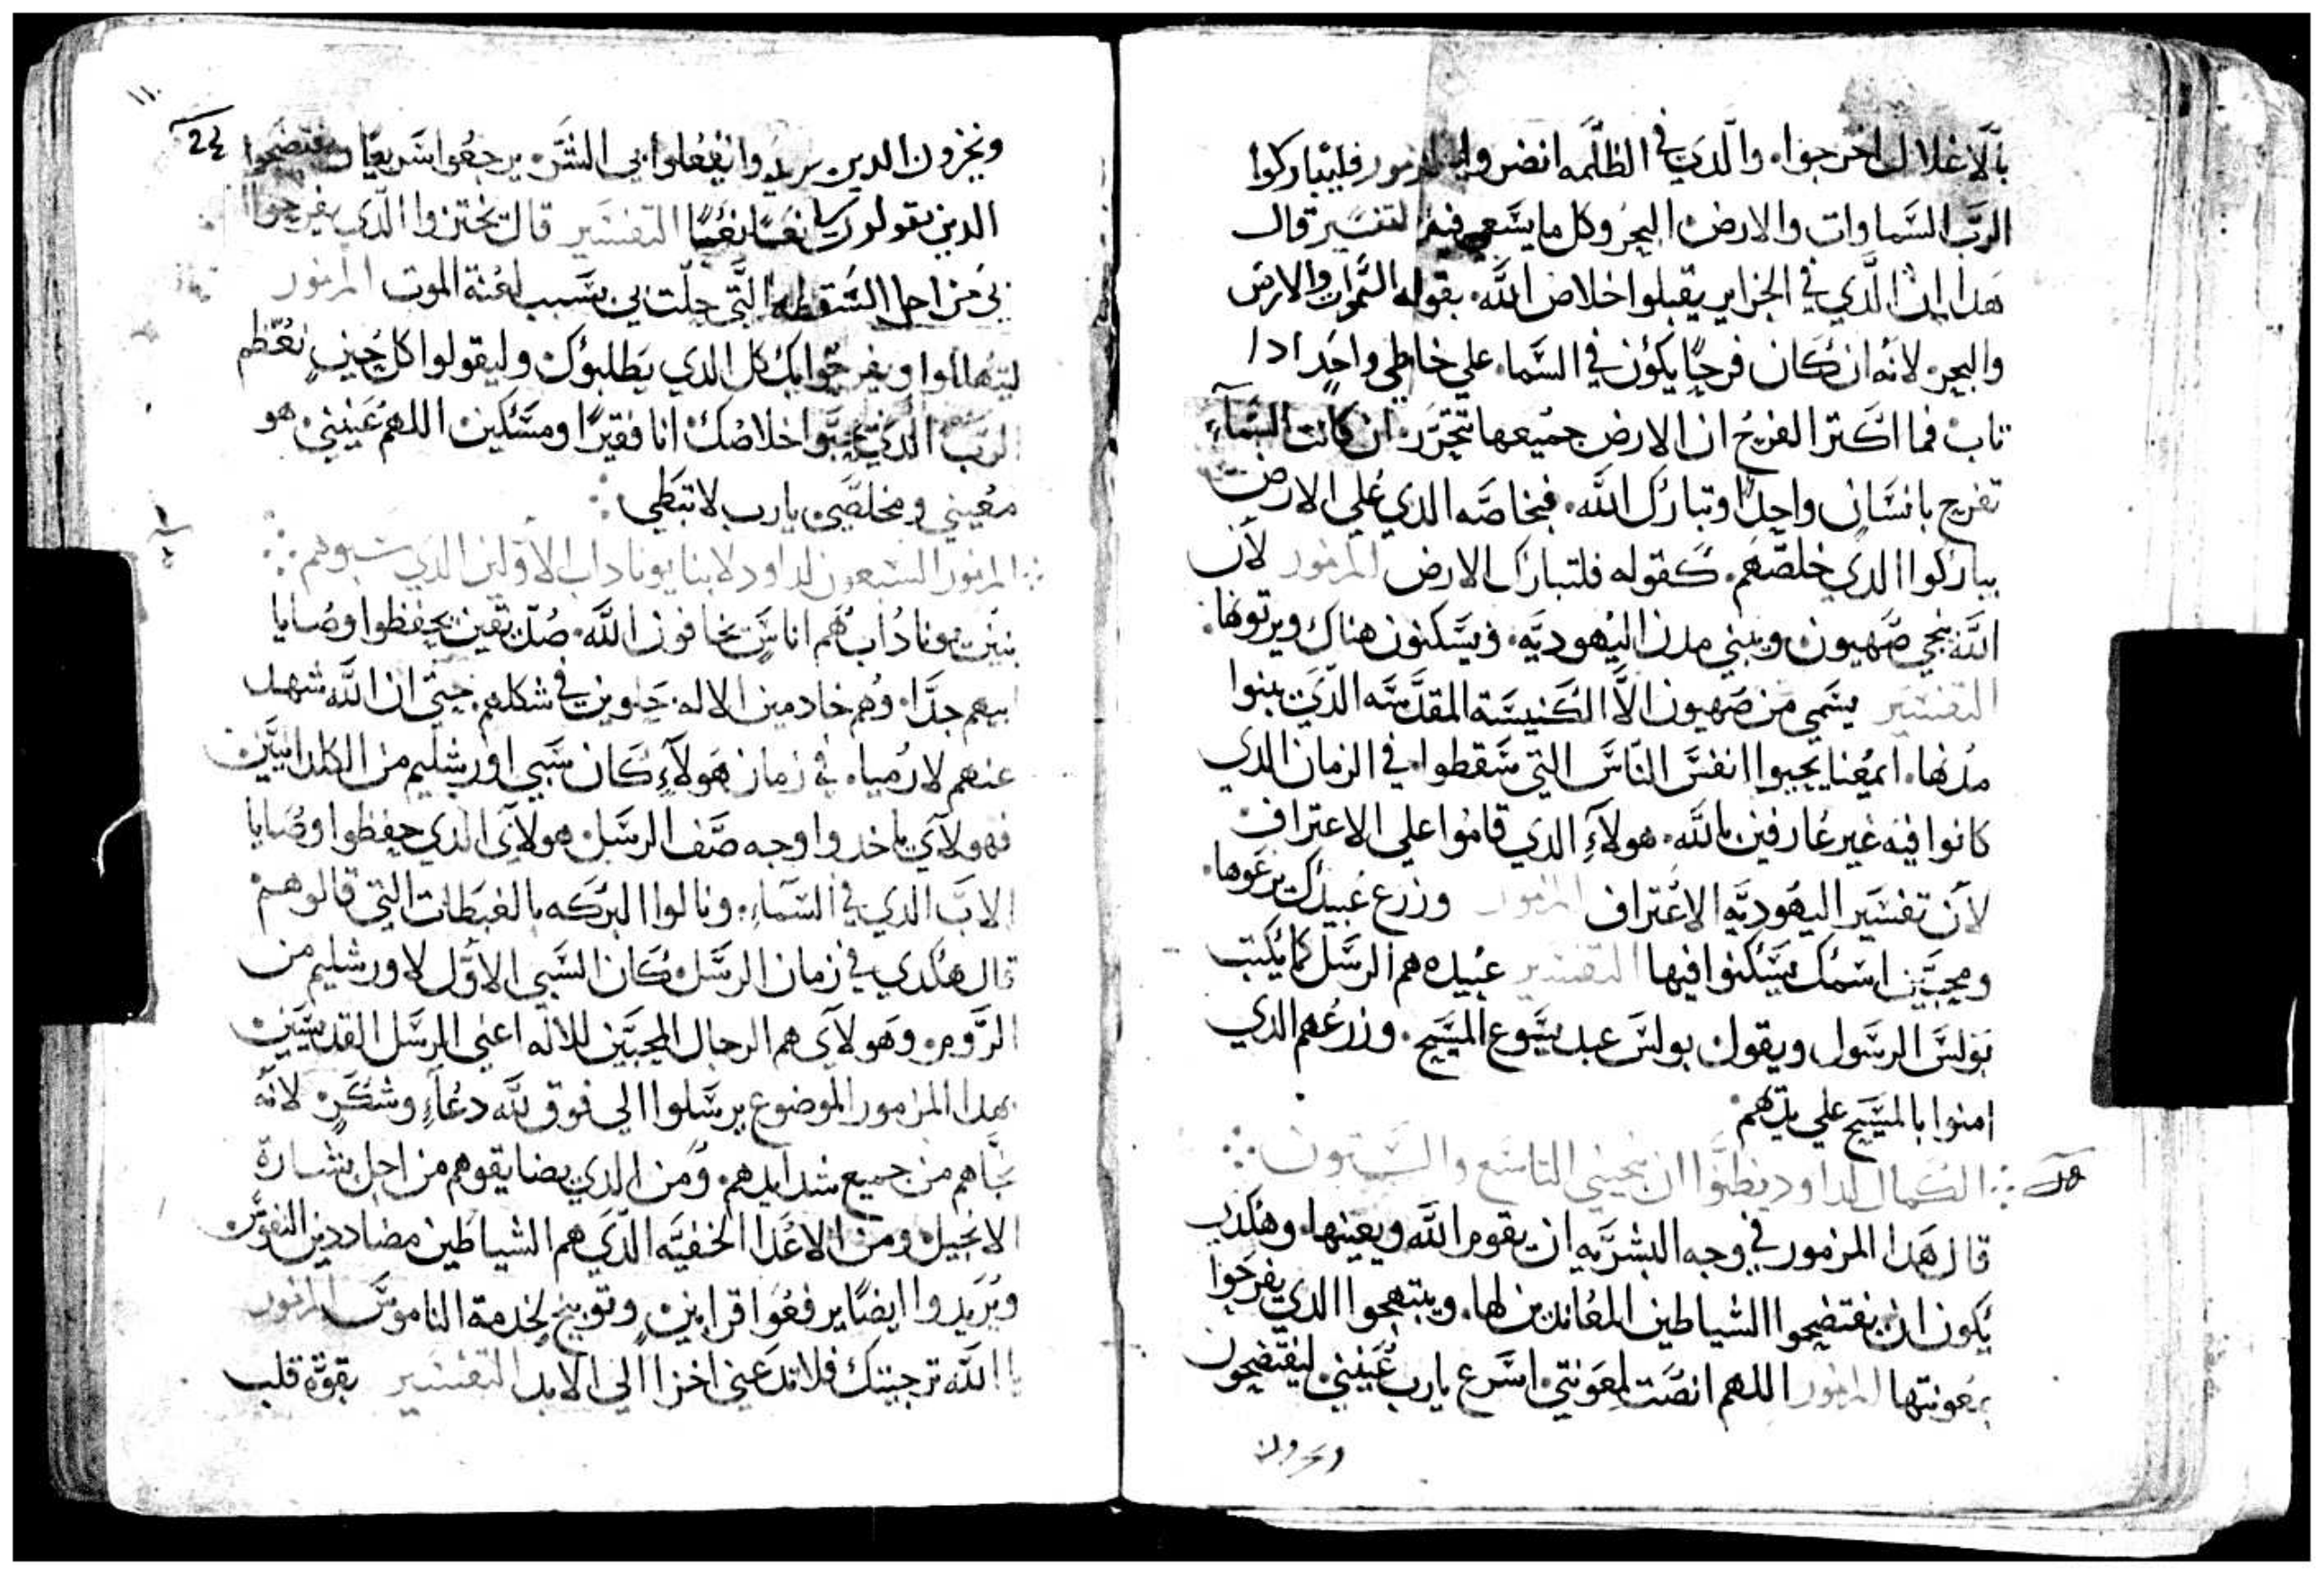 بالاغلال اخرجوا. والدي في الظلمه انضروا المزمور فليباركوا
الرب السماوات والارض البحر وكل ما يسعي فيهم التفسير قال
هدا ان الدي في الجزاير يقبلوا خلاص الله. بقوله السموات والارض
والبحر. لانه ان كان فرحا يكون في السما. علي خاطي واحد ادا
تاب فما اكتر الفرح ان الارض جميعها تتحرر. ان كانت السماء
تفرح بانسان واحدا وتبارك الله. فبخاصه الدي علي الارض
يباركوا الدي خلصهم. كقوله فلتبارك الارض المزمور لان
الله ينجي صهيون ويبني مدن اليهوديه. ويسكنون هناك ويرتوها.
التفسير يسمي من صهيون الا الكنيسة المقدسه الدي بنوا
مدنها. ايمعنا يحيوا انفس الناس التي سقطوا. في الزمان الدي
كانوا فيه غير عارفين بالله. هولاء الدي قاموا علي الاعتراف
لان تفسير اليهوديه الاعتراف المزمور وزرع عبيدك يرعوها.
ومحبين اسمك يسكنوا فيها التفسير عبيده هم الرسل كما يكتب
بولس الرسول ويقول بولس عبد يسوع المسيح. وزرعهم الدي
امنوا بالمسيح علي يدهم.
الكمال لداود يطلبوا ان نجيني التاسع والستون
قال هدا المزمور في وجه البشريه ان يقوم الله ويعينها. وهكدي
يكون ان يفتضحوا الشياطين المعاندين لها. ويبتهجوا الدي يفرحوا
بمعونتها المزمور اللهم انصت لمعونتي اسرع يارب عينني ليفتضحون
ويخزون
١١٠
24
ويخزون الدين يريدوا انيفعلوا بي الشر. يرجعوا سريعا ويفتضحوا
الدين يقولون لي نعما نعما التفسير قال يختزوا الدي يفرحوا
بي من اجل السقطه التي حلت بي بسبب لعنة الموت المزمور
ليتهللوا ويفرحوا بك كل الدي يطلبوك وليقولوا كل حين نعظم
الرب الدي يحبوا خلاصك انا فقيرا ومسكين اللهم عينني هو
معيني ومخلصي يارب لا تبطي
المزمور السبعون لداود لابنا يوناداب الاولين الدي سبوهم
بنين يوناداب هم اناس يخافون الله. صديقين يحفظوا وصايا
ابيهم جدا. وهم خادمين الاله. حلوين في شكلهم. حتي ان الله شهد
عنهم لارمياه. في زمان هولاء كان سبي اورشليم من الكلدانيين
فهولاي ياخدوا وجه صف الرسل. هولاي الدي حفظوا وصايا
الاب الدي في السماء. ونالوا البركه بالغبطات التي قالوهم
قال هكدي في زمان الرسل. كان السبي الاول لاورشليم من
الروم. وهولاي هم الرجال المحبين للاله اعني الرسل القديسين
بهدا المزمور الموضوع يرسلوا الي فوق لله دعاء وشكر. لانه
نجاهم من جميع شدايدهم. ومن الدي يضايقوهم من اجل بشارة
الانجيل ومن الاعدا الخفيه الدي هم الشياطين مضاددين النفوس
ويريدوا ايضا يرفعوا قرابين وتوبيخ لخدمة الناموس المزمور
يا الله ترجيتك فلا تدعني اخزا الي الابد التفسير بقوة قلب